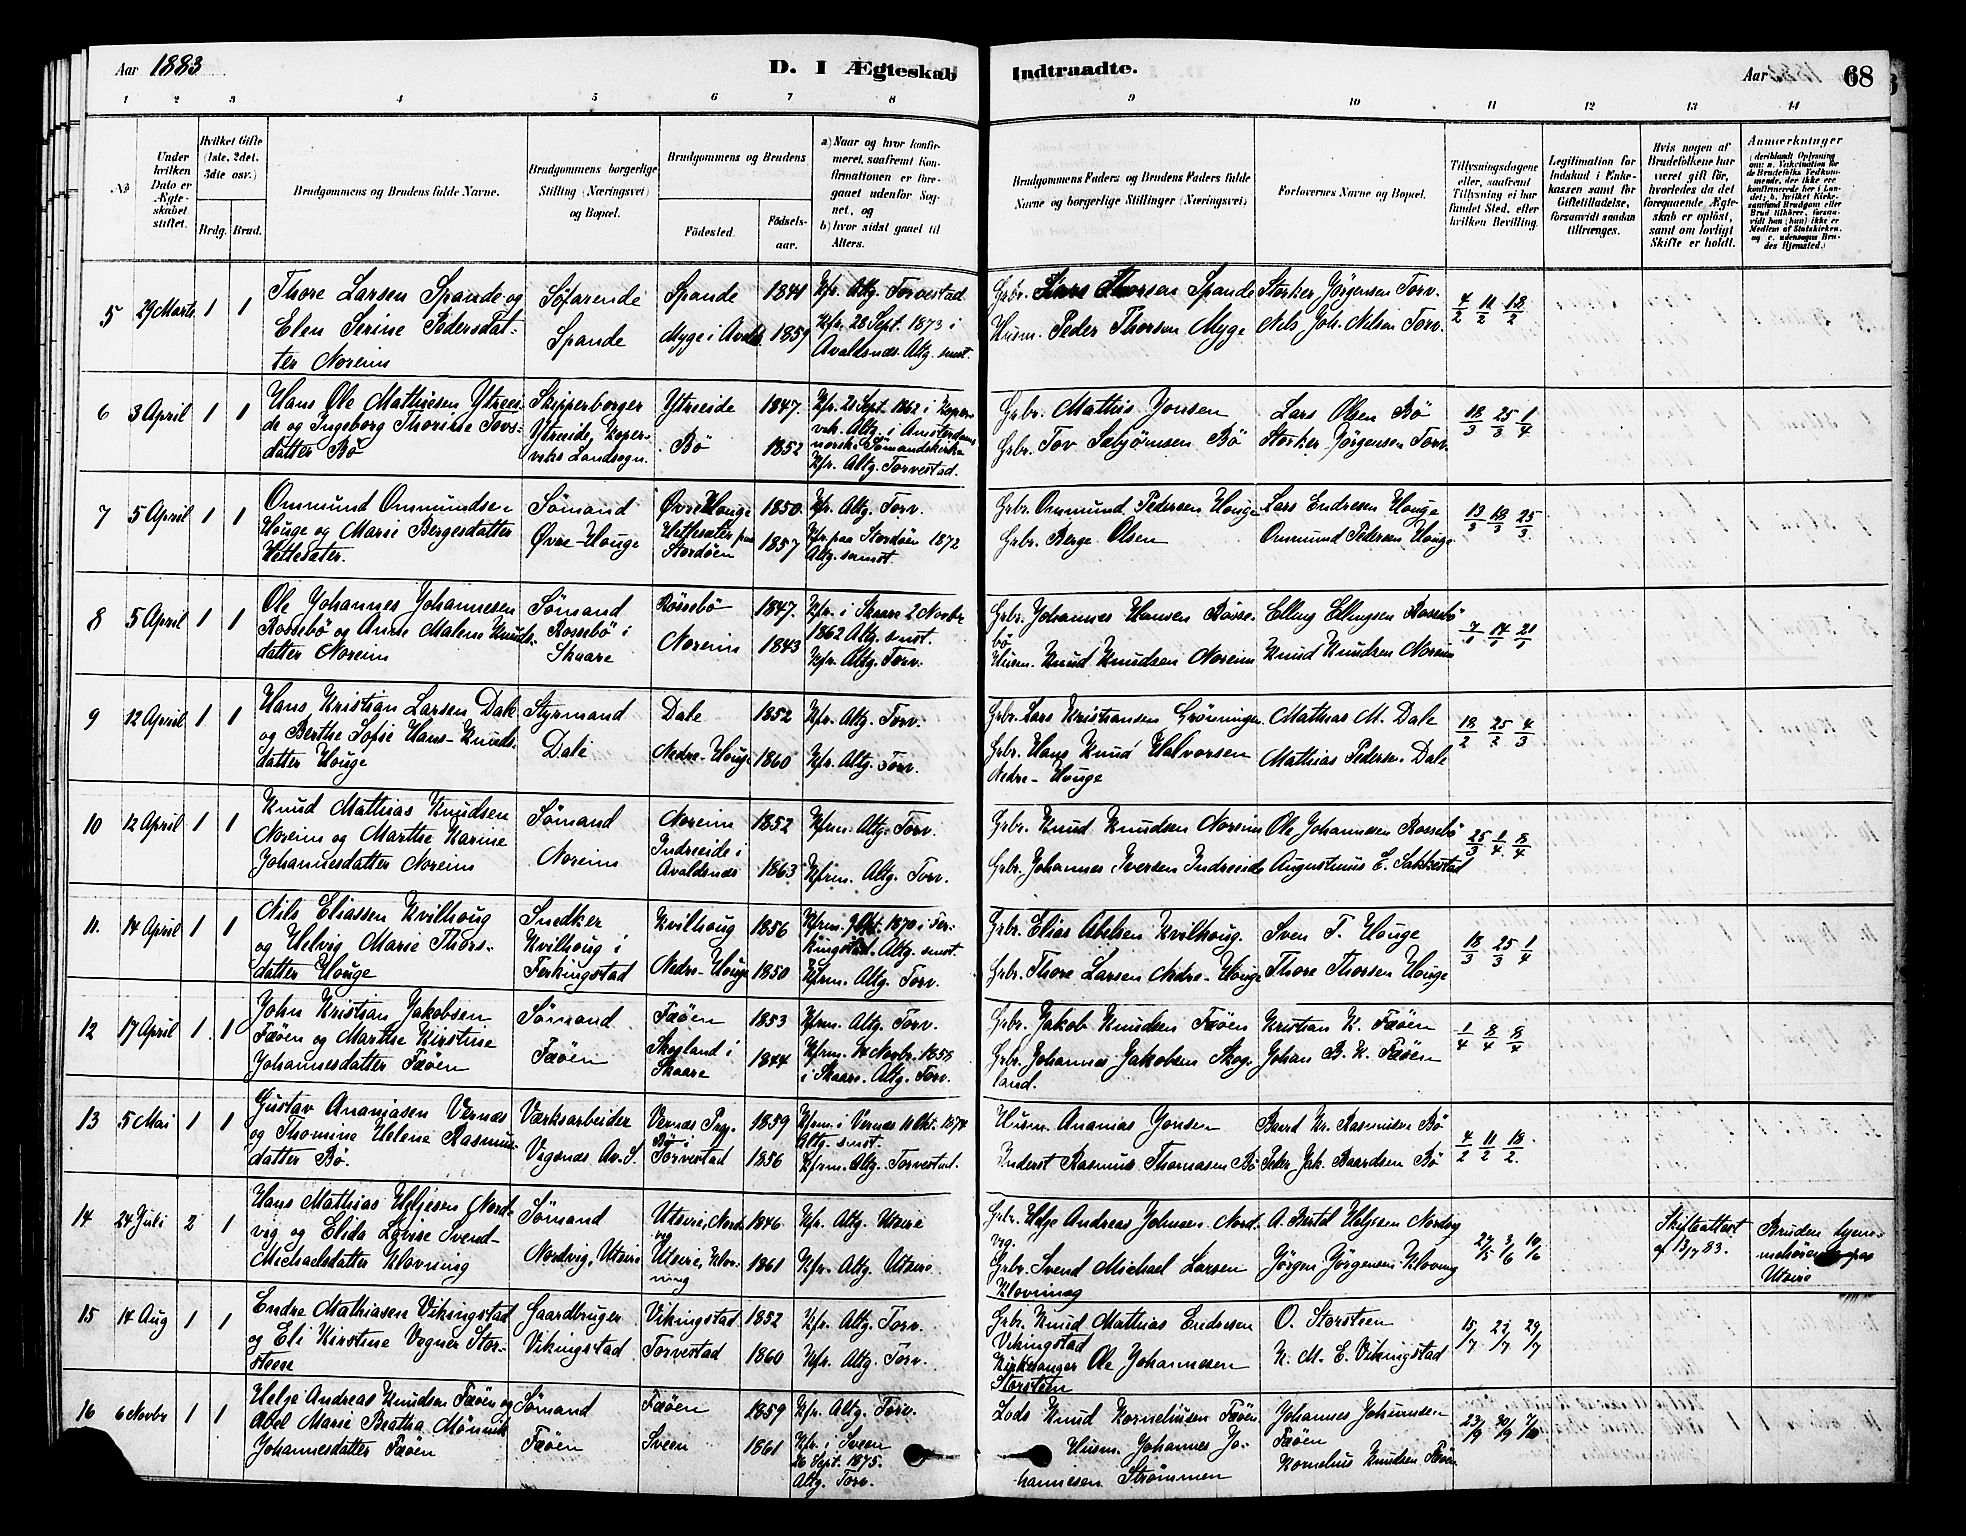 Aar 1883
D. I Ægteskab Indtraadte.
Aar
68
1 2 3 4 5 6 7 8 9 10 11 12 13 14
No
Under hvilken Dato er Ægteskabet stiftet.
Hvilket Gifte (1ste, 2det, 3die osv.)
Brdg. Brud.
Brudgommens og Brudens fulde Navne.
Brudgommens borgerlige Stilling (Næringsvei) og Bopæl.
Brudgommens og Brudens
Fødested.
Fødselsaar.
a) Naar og hvor konfirmeret, saafremt Konfirmationen er foregaaet udenfor Sognet, og
b) hvor sidst gaaet til Alters.
Brudgommens Faders og Brudens Faders fulde Navne og borgerlige Stillinger (Næringsvei)
Forlovernes Navne og Bopæl.
Tillysningsdagene eller, saafremt Tillysning ei har fundet Sted, efter hvilken Bevilling.
Legitimation for Indskud i Enkekassen samt for Giftetilladelse, forsaavidt saadan tiltrænges.
Hvis nogen af Brudefolkene har været gift før, hvorledes da det foregaaende Ægteskab er opløst, samt om lovligt Skifte er holdt.
Anmærkninger
5 29 Marts 1 1
Thore Larsen Spande og
Elen Serine Pedersdat-
ter Noreim
Søfarende
Spande
Spande 1841
Myge i Avalds. 1859
Kfr. Altg. Torvestad
Kfr. 28 Sept. 1873 i
Avaldsnes. Altg. smst.
Grbr. Lars Thorsen Spande
Husm. Peder Thorsen Myge
Storker Jörgensen Torv.
Nils Joh. Nilsen Torv.
4/2 11/2 18/2
6 3 April 1 1
Hans Ole Mathiesen Ytreei-
de og Ingeborg Thorine Tovs-
datter Bö
Skipperborger
Ytreeide, Koper-
viks Landsogn.
Ytreeide 1847.
Bö 1852
Kfr. 28 Sept. 1862 i Koper-
vik. Altg. i Amsterdams
norske Sømandskirke
Kfr. Altg. Torvestad.
Grbr. Mathis Jonsen
Grbr. Tov Sæbjörnsen Bö
Lars Olsen Bö
Storker Jörgensen Torv.
18/3 25/3 1/4
7 5 April 1 1
Ommund Ommundsen
Houge og Marie Bergesdatter
Hettesæter.
Sömand
Øvre Houge
Øvre Houge 1850.
Hettesæter paa
Stordöen 1857
Kfr. Altg. Torv.
Kfr. paa Stordöen 1872
Altg. samst.
Grbr. Ommund Pedersen Houge
Grbr. Berge Olsen
Lars Endresen Houge
Ommund Pedersen Houge
13/3 18/3 25/3
8 5 April 1 1
Ole Johannes Johannesen
Rossebö og Anne Malene Knuds-
datter Noreim
Sömand
Rossebö i
Skaare
Rossebö 1847.
Noreim 1843
Kfr. i Skaare 2 Novbr
1862 Altg. smst.
Kfr. Altg. Torv.
Grbr. Johannes Hansen Rosse-
bö
Husm. Knud Knudsen Noreim
Elling Ellingsen Rossebö
Knud Knudsen Noreim
7/1 14/1 21/1
9 12 April 1 1
Hans Kristian Larsen Dale
og Berthe Sofie Hans-Knuds-
datter Houge
Styrmand
Dale
Dale 1852
Nedre-Houge 1860
Kfr. Altg. Torv.
Kfr. Altg. Torv.
Grbr. Lars Kristiansen Grönningen
Grbr. Hans Knud Halvorsen
Nedre-Houge
Mathias M. Dale
Mathias Pedersen Dale
18/2 25/2 4/3
10 12 April 1 1
Knud Mathias Knudsen
Noreim og Marthe Karine
Johannesdatter Noreim
Sömand
Noreim
Noreim 1852
Indreeide i
Avaldsnes 1863
Kfrm. Altg. Torv.
Kfrm. Altg. Torv.
Grbr. Knud Knudsen Noreim
Grbr. Johannes Iversen Indreeide
Ole Johannesen Rossebö
Augustinus E. Sakkestad
25/3 1/4 8/4
11. 14 April 1 1
Nils Eliassen Kvilhoug
og Helvig Marie Thors-
datter Houge
Snedker
Kvilhoug i
Ferkingstad
Kvilhoug 1856
Nedre-Houge 1850
Kfrm. 9 Okt. 1870 i Fer-
kingstad. Altg. smst.
Kfrm. Altg. Torv.
Grbr. Elias Abelsen Kvilhoug.
Grbr. Thore Larsen Nedre-Houge
Sven T. Houge
Thore Thorsen Houge
18/3 25/3 1/4
12 17 April 1 1
John Kristian Jakobsen
Fæöen og Marthe Kirstine
Johannesdatter Fæöen
Sömand
Fæöen
Fæöen 1853
Skogland i
Skaare 1844
Kfrm. Altg. Torv.
Kfrm. 14 Novbr. 1858
i Skaare. Altg. Torv.
Grbr. Jakob Knudsen Fæöen
Grbr. Johannes Jakobsen Skog-
land.
Kristian K. Fæöen
Johan B. K. Fæöen
1/4 8/4 8/4
13 5 Mai 1 1
Gustav Ananiasen Vernæs
og Thomine Helene Rasmus-
datter Bö.
Værksarbeider
Vigsnæs Av. S.
Vernæs Pgj. 1859
Bö i
Torvestad 1856
Kfrm. i Vernæs 11 Okt. 1874
Altg. smst.
Kfrm. Altg. Torvestad.
Husm. Ananias Jonsen
Inderst Rasmus Thomasen Bö
Baard Kr. Rasmusen Bö
Peder Joh. Baardsen Bö
4/2 11/2 18/2
14 24 Juli 2 1
Hans Mathias Helgesen Nord-
vig og Elida Lovise Svend-
Michaelsdatter Klovning
Sömand
Nordvig, Utsire
Utsire, Nord-
vig 1846.
Utsire, Klov-
ning 1861
Kfr. Altg. Utsire
Kfr. Altg. Utsire
Grbr. Helge Andreas Johnsen Nord-
vig.
Grbr. Svend Michael Larsen
Klovning
A. Bertel Helgesen Nordvig
Jörgen Jörgensen Klovning
27/5 3/6 10/6
Skifteattest
af 13/7 83.
Bruden hjem-
mehörende paa
Utsire
15 14 Aug 1 1
Endre Mathiasen Vikingstad
og Eli Kirstine Vogner Stor-
steen
Gaardbruger
Vikingstad
Vikingstad 1852
Torvestad 1860
Kfr. Altg. Torv.
Kfr. Altg. Torv.
Grbr. Knud Mathias Endresen
Vikingstad
Kirkesanger Ole Johannesen
Storsteen
O. Storsteen
K. M. E. Vikingstad
15/7 22/7 29/7
16 6 Novbr 1 1
Helge Andreas Knudsen Fæöen og
Abel Marie Beatha Mönnik
Johannesdatter Fæöen
Sömand
Fæöen
Fæöen 1859
Sveen 1861
Kfr. Altg. Torv.
Kfr. i Sveen
26 Sept. 1875.
Altg. Torv.
Lods Knud Kornelius­sen Fæöen
Husm. Johannes Jo-
hannesen Strömmen
Johannes Johannsen
Fæöen
Kornelius Knudsen Fæöen
23/9 30/9 7/10